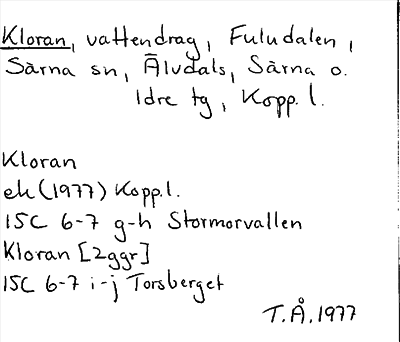 Kloran, vattendrag, Fuludalen,
Särna sn, Älvdals, Särna o.
Idre tg, Kopp. l.
Kloran
ek (1977) Kopp.l.
15C 6-7 g-h Stormorvallen
Kloran [2ggr]
15C 6-7 i-j Torsberget
T.Å. 1977